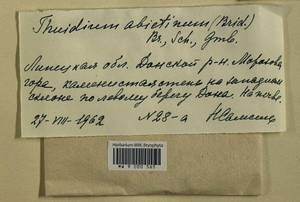 Thuidium abietinum (Brid.)
Br., Sch., Gmb.
Липецкая обл. Донской р-н. Морозова
гора, каменистая степь на западном
склоне по левому берегу Дона. На почве.
27-VIII-1962 N 28-а
Herbarium MW, Bryophyta